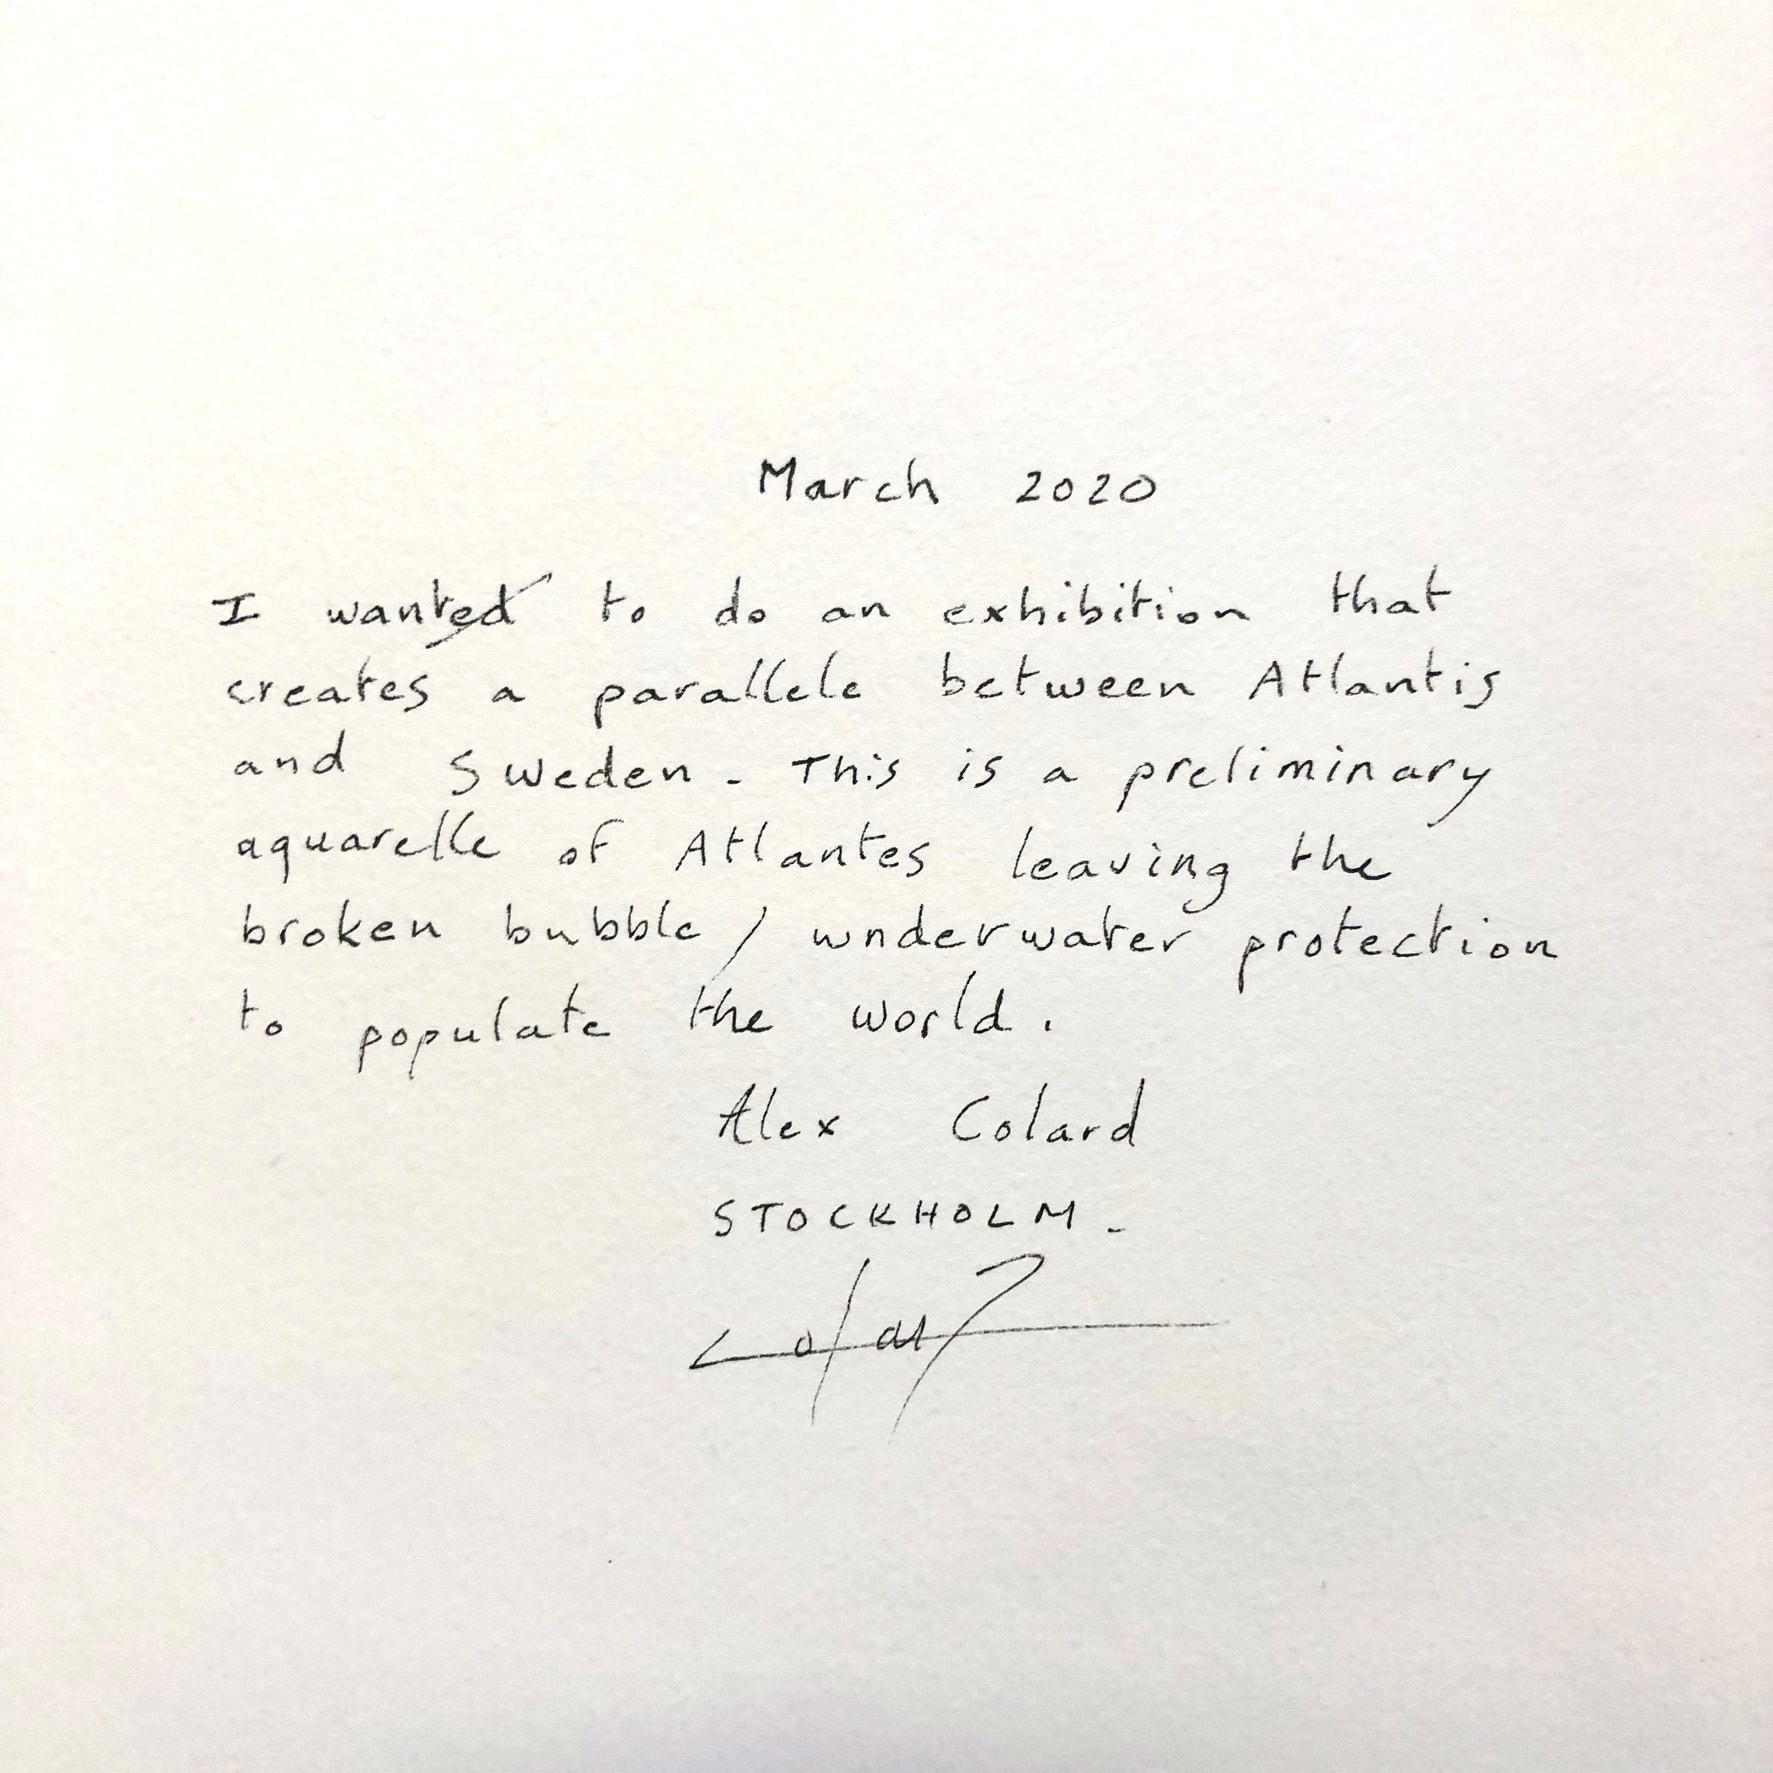 March 2020
I wanted to do an exhibition that
creates a parallele between Atlantis
and Sweden. This is a preliminary
aquarelle of Atlantes leaving the
broken bubble / underwater protection
to populate the world.
Alex Colard
STOCKHOLM.
Colard